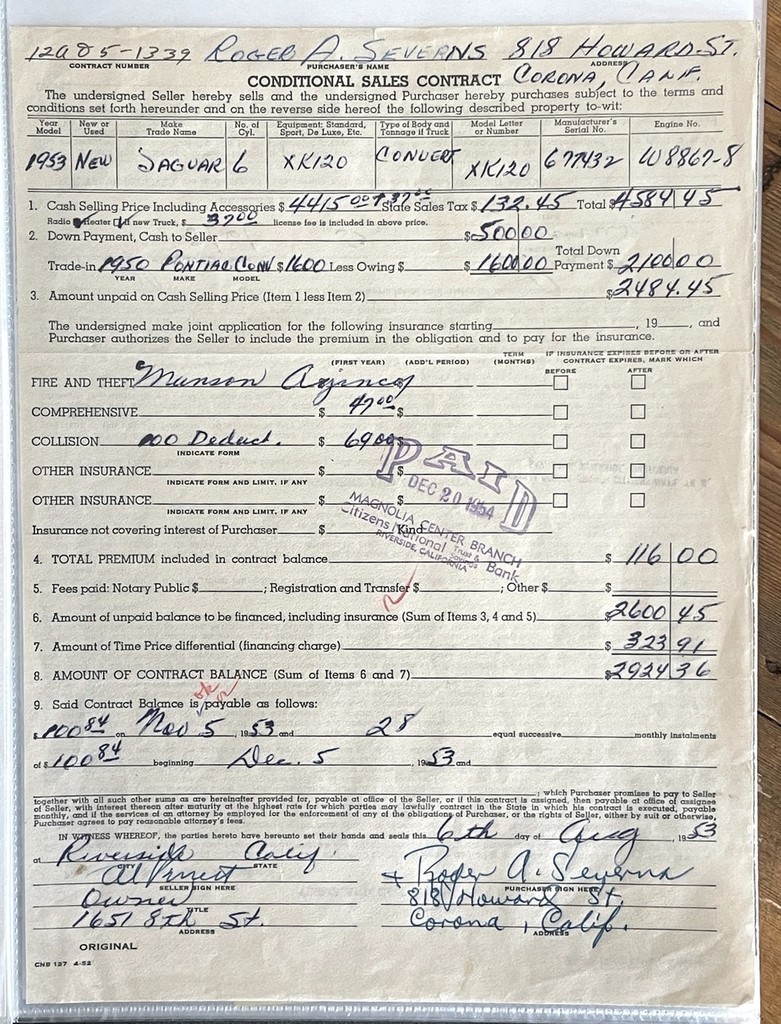 12985-1339 ROGER A. SEVERNS 818 HOWARD ST.
CONTRACT NUMBER PURCHASER'S NAME ADDRESS
CONDITIONAL SALES CONTRACT CORONA, CALIF.
The undersigned Seller hereby sells and the undersigned Purchaser hereby purchases subject to the terms and
conditions set forth hereunder and on the reverse side hereof the following described property to-wit:
Year Model New or Used Make Trade Name No. of Cyl. Equipment: Standard, Sport, De Luxe, Etc. Type of Body and Tonnage if Truck Model Letter or Number Manufacturer's Serial No. Engine No.
1953 NEW JAGUAR 6 XK120 CONVERT XK120 677432 W8867-8
1. Cash Selling Price Including Accessories $ 4415 00 + 37 00 State Sales Tax $ 132.45 Total $ 4584 45
Radio Heater If new Truck, $ 37 00 license fee is included in above price.
2. Down Payment, Cash to Seller $ 500 00
Trade-in 1950 PONTIAC CONV $ 1600 Less Owing $ $ 1600 00 Total Down Payment $ 2100 00
YEAR MAKE MODEL
3. Amount unpaid on Cash Selling Price (Item 1 less Item 2) $ 2484.45
The undersigned make joint application for the following insurance starting , 19 , and
Purchaser authorizes the Seller to include the premium in the obligation and to pay for the insurance.
(FIRST YEAR) (ADD'L PERIOD) TERM (MONTHS) IF INSURANCE EXPIRES BEFORE OR AFTER CONTRACT EXPIRES, MARK WHICH
BEFORE AFTER
FIRE AND THEFT Munson Agency
COMPREHENSIVE $ 47 00 $
COLLISION 100 Deduct. $ 69 00 $
INDICATE FORM
OTHER INSURANCE $ $
INDICATE FORM AND LIMIT, IF ANY
OTHER INSURANCE $ $
INDICATE FORM AND LIMIT, IF ANY
Insurance not covering interest of Purchaser $ Kind
PAID
DEC 20 1954
MAGNOLIA CENTER BRANCH
Citizens National Trust & Savings Bank
RIVERSIDE, CALIFORNIA
4. TOTAL PREMIUM included in contract balance $ 116 00
5. Fees paid: Notary Public $ ; Registration and Transfer $ ; Other $ $
6. Amount of unpaid balance to be financed, including insurance (Sum of Items 3, 4 and 5) $ 2600 45
7. Amount of Time Price differential (financing charge) $ 323 91
8. AMOUNT OF CONTRACT BALANCE (Sum of Items 6 and 7) $ 2924 36
ok
9. Said Contract Balance is payable as follows:
$ 100 84 on Nov 5, 1953 and 28 equal successive monthly instalments
of $ 100 84 beginning Dec. 5, 1953 and
; which Purchaser promises to pay to Seller
together with all such other sums as are hereinafter provided for, payable at office of the Seller, or if this contract is assigned, then payable at office of assignee
of Seller, with interest thereon after maturity at the highest rate for which parties may lawfully contract in the State in which his contract is executed, payable
monthly, and if the services of an attorney be employed for the enforcement of any of the obligations of Purchaser, or the rights of Seller, either by suit or otherwise,
Purchaser agrees to pay reasonable attorney's fees.
IN WITNESS WHEREOF, the parties hereto have hereunto set their hands and seals this 6th day of Aug, 1953
at Riverside Calif.
CITY STATE
+ Roger A. Severns
SELLER SIGN HERE PURCHASER SIGN HERE
Owner 818 Howard St.
TITLE
1651 8th St. Corona, Calif.
ADDRESS ADDRESS
ORIGINAL
CNB 137 4-52